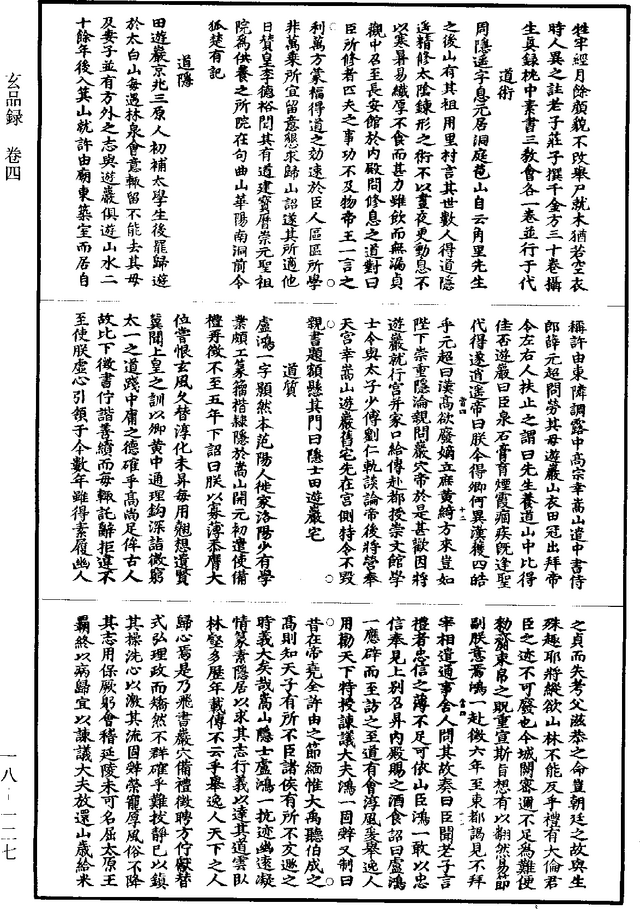 牲牢經月餘顏貌不改舉尸就木猶若空衣
時人異之註老子莊子撰千金方三十卷攝
生真録枕中素書三教會各一卷並行于代
道術
周隱遥字息元居洞庭苞山自云角里先生
之後山有其祖用里村言其世數人得道隱
遥精修太陰鍊形之術不以晝夜更動息不
以寒暑易纖厚不食而甚力雖飲而無漏貞
觀中召至長安館於内殿問修息之道對曰
臣所修者匹夫之事功不及物帝王一言之
利萬方蒙福得道之効速於臣人區區所學
非萬乘所宜留意懇求歸山詔遂其所適他
日贊皇李德裕問其有道建寶曆崇元聖祖
院為供養之所院在句曲山華陽南洞前令
狐楚有記
道隱
田遊巖京兆三原人初補太學生後罷歸遊
於太白山每遇林泉會意輒留不能去其母
及妻子並有方外之志與遊巖俱遊山水二
十餘年後入箕山就許由廟東築室而居自
稱許由東隣調露中高宗幸嵩山遣中書侍
郎薛元超問勞其母遊巖山衣田冠出拜帝
令左右人扶止之謂曰先生養道山中比得
佳否遊巖曰臣泉石膏肓煙霞痼疾既逢聖
代得遂逍遥帝曰朕今得卿何異漢獲四皓
乎元超曰漢高欲廢嫡立庶黄綺方來豈如
陛下崇重隱淪親問巖穴帝於是甚歡因將
遊巖就行宫并家口給傳赴都授崇文館學
士令與太子少傅劉仁軌談論帝後將營奉
天宫幸嵩山遊巖舊宅先在宫側特令不毀
親書題額懸其門曰隱士田遊巖宅
道質
盧鴻一字顥然本范陽人徙家洛陽少有學
業頗工篆籀楷隸隱於嵩山開元初遣使備
禮再徵不至五年下詔曰朕以寡薄忝膺大
位嘗恨玄風久替淳化未昇每用翹想遺賢
冀聞上皇之訓以卿黄中通理鈎深詣微窮
太一之道踐中庸之德確乎高尚足侔古人
故比下徵書佇諧善績而每輒託辭拒違不
至使朕虚心引領于今數年雖得素履幽人
之貞而失考父滋恭之命豈朝廷之故與生
殊趣耶將縱欲山林不能反乎禮有大倫君
臣之迹不可廢也今城闕密邇不足為難便
勑齎束帛之貺重宣斯旨想有以翻然易節
副朕意焉鴻一赴徵六年至東都謁見不拜
宰相遣通事舍人問其故奏曰臣聞老子言
禮者忠信之薄不足可依山臣鴻一敢以忠
信奉見上别召昇内殿賜之酒食詔曰盧鴻
一應辟而至訪之至道有會淳風爰舉逸人
用勸天下特授諫議大夫鴻一固辭又制曰
昔在帝堯全許由之節緬惟大禹聽伯成之
高則知天子有所不臣諸侯有所不友遯之
時義大矣哉嵩山隱士盧鴻一抗迹幽遠凝
情篆素隱居以求其志行義以達其道雲卧
林壑多歷年載傳不云乎舉逸人天下之人
歸心焉是乃飛書巖穴備禮徵聘方佇獻替
式弘理政而矯然不群確乎難拔静已以鎮
其操洗心以激其流固辭榮寵厚風俗不降
其志用保厥躬會稽延陵未可名屈太原王
霸終以病歸宜以諫議大夫放還山歲給米
玄品録 卷四
一八－一二七